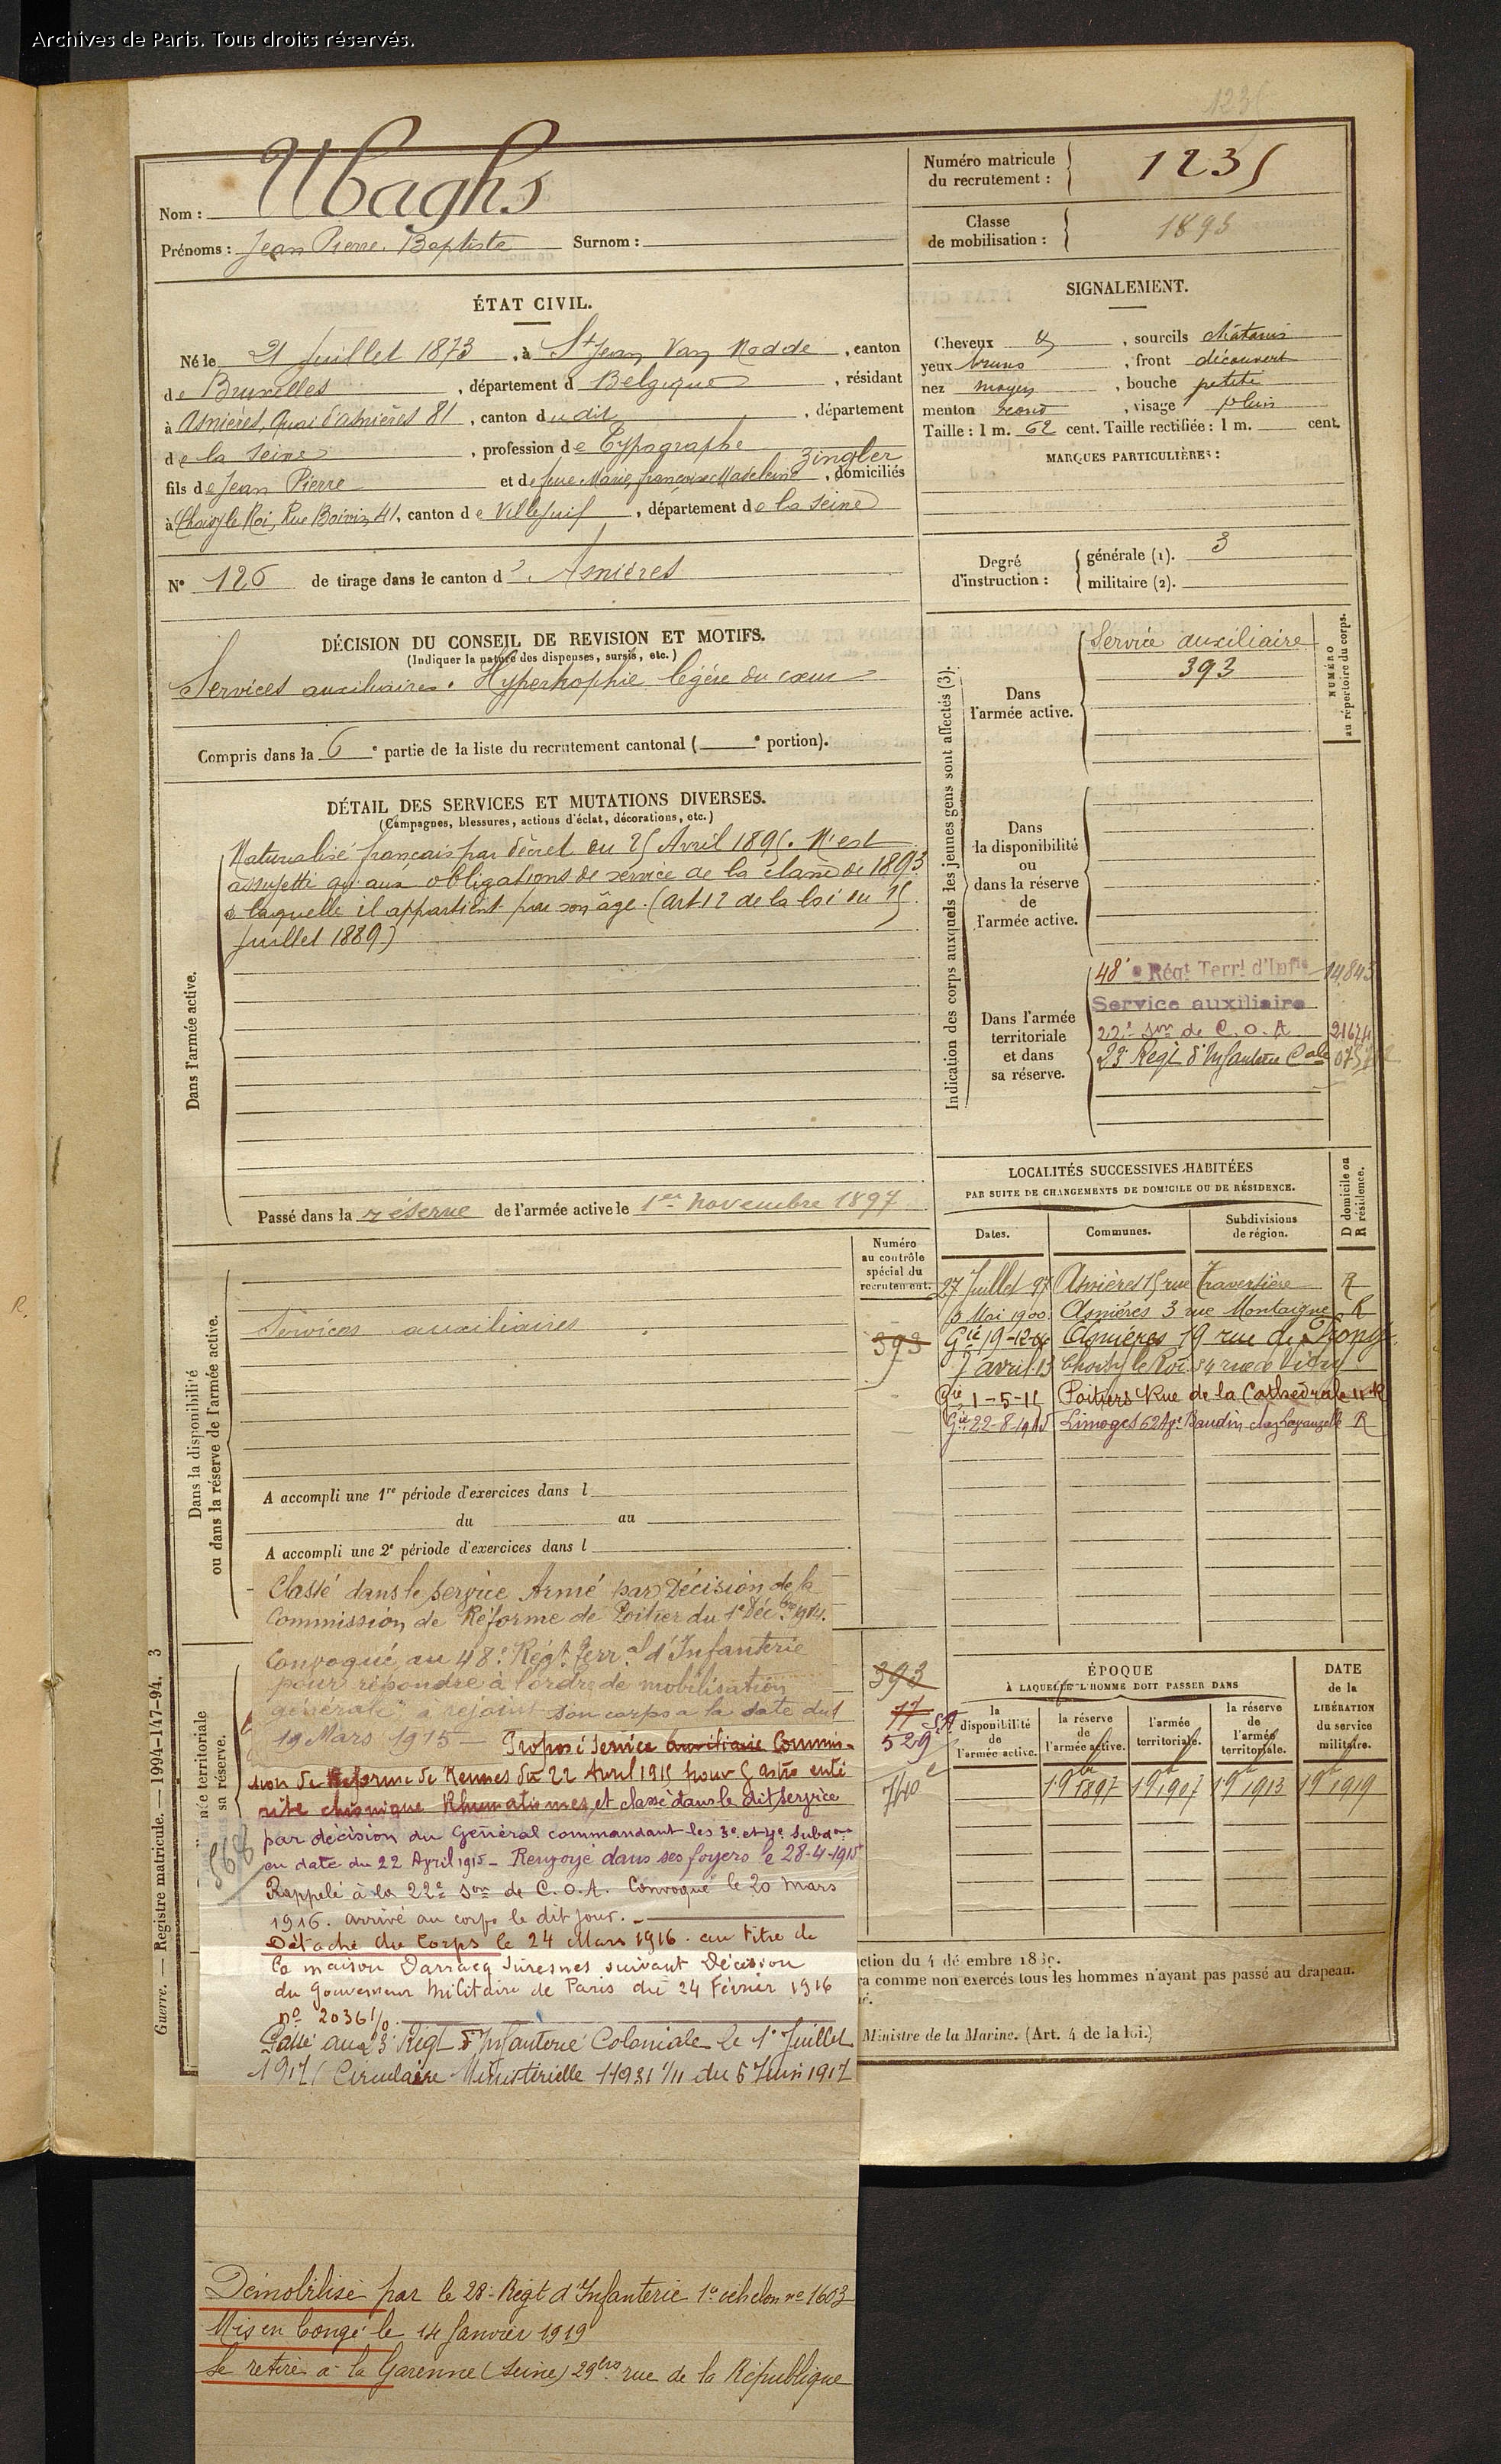 Archives de Paris. Tous droits réservés.
Nom : Ubaghs
Prénoms : Jean Pierre Baptiste Surnom :
Numéro matricule
du recrutement : 1235
Classe
de mobilisation : 1893
ÉTAT CIVIL.
Né le 21 Juillet 1873, à St Jean Van Nodde, canton
de Bruxelles, département d Belgique, résidant
à Asnières, Quai d'Asnières 81, canton du dit, département
de la Seine, profession de Typographe
Zingler
fils de Jean Pierre et de feue Marie françoise Madeleine, domiciliés
à Choisy le Roi, Rue Boivin 41, canton de Villejuif, département de la Seine
N° 126 de tirage dans le canton d' Asnières
SIGNALEMENT.
Cheveux et, sourcils châtains
yeux bruns, front découvert
nez moyen, bouche petite
menton rond, visage plein
Taille : 1 m. 62 cent. Taille rectifiée : 1 m. cent.
MARQUES PARTICULIÈRES :
Degré
d'instruction :
générale (1). 3
militaire (2).
DÉCISION DU CONSEIL DE REVISION ET MOTIFS.
(Indiquer la nature des dispenses, sursis, etc.)
Services auxiliaires. Hypertrophie légère du cœur
Compris dans la 6e partie de la liste du recrutement cantonal ( e portion).
DÉTAIL DES SERVICES ET MUTATIONS DIVERSES.
(Campagnes, blessures, actions d'éclat, décorations, etc.)
Dans l'armée active.
Naturalisé français par décret du 25 Avril 1895. N'est
assujetti qu'aux obligations de service de la classe de 1893
à laquelle il appartient par son âge. (art 12 de la loi du 15
Juillet 1889)
Passé dans la réserve de l'armée active le 1er novembre 1897
Indication des corps auxquels les jeunes gens sont affectés (3).
NUMÉRO
au répertoire du corps.
Dans
l'armée active.
Service auxiliaire
393
Dans
la disponibilité
ou
dans la réserve
de
l'armée active.
Dans l'armée
territoriale
et dans
sa réserve.
48e Régt Terrl d'Infie 14843
Service auxiliaire
22e Son de C.O.A
23e Regt d'Infanterie Cale
LOCALITÉS SUCCESSIVES HABITÉES
PAR SUITE DE CHANGEMENTS DE DOMICILE OU DE RÉSIDENCE.
Dates. Communes. Subdivisions
de région. D domicile ou
R résidence.
27 Juillet 97 Asnières 15 rue Traversière R
Mai 1900 Asnières 3 rue Montaigne R
Gie 19-12-06 Asnières 19 rue de
avril 13 Choisy le Roi 54 rue de Vitry
Gie 1-5-15 Poitiers Rue de la Cathédrale 11 R
Gie 22-8-1915 Limoges 62 Av. Baudin chez R
Dans la disponibilité
ou dans la réserve de l'armée active.
Numéro
au contrôle
spécial du
recrutement.
Services auxiliaires 393
A accompli une 1re période d'exercices dans l
du au
A accompli une 2e période d'exercices dans l
Classé dans le Service Armé par Décision de la
Commission de Réforme de Poitier du 1e Décbre 1914.
Convoqué au 48e Régt Terral d'Infanterie
pour répondre à l'ordre de mobilisation
générale, a rejoint son corps à la date du
19 Mars 1915 — Proposé Service Auxiliaire Commis-
sion de Réforme de Rennes du 22 Avril 1915 pour Gastro enté
rite chronique Rhumatismes, et classé dans le dit Service
par décision du Général commandant les 3e et 4e Subdons
en date du 22 Avril 1915 - Renvoyé dans ses foyers le 28-4-1915
Rappelé à la 22e Son de C.O.A. Convoqué le 20 mars
1916. arrivé au corps le dit jour.
Détaché du Corps le 24 Mars 1916 au titre de
la maison Darracq Suresnes suivant Décision
du Gouverneur Militaire de Paris du 24 Février 1916
n° 20361/0
Passé au 23e Régt d'Infanterie Coloniale le 1e Juillet
1917 (Circulaire Ministérielle 11931 1/11 du 6 Juin 1917
393
77
529
740
568
ÉPOQUE
À LAQUELLE L'HOMME DOIT PASSER DANS
la
disponibilité
de
l'armée active.
la réserve
de
l'armée active.
l'armée
territoriale.
la réserve
de
l'armée
territoriale.
DATE
de la
LIBÉRATION
du service
militaire.
1 9bre 1897 1 9b 1907 1 9b 1913 1 9b 1919
ction du 4 dé embre 18
ra comme non exercés tous les hommes n'ayant pas passé au drapeau.
Ministre de la Marine. (Art. 4 de la loi.)
Guerre. — Registre matricule. — 1994-147-94. 3
Démobilisé par le 28e Régt d'Infanterie 1e echelon n° 1603
Mis en Congé le 14 Janvier 1919
Se retire à la Garenne (Seine) 29bis rue de la République